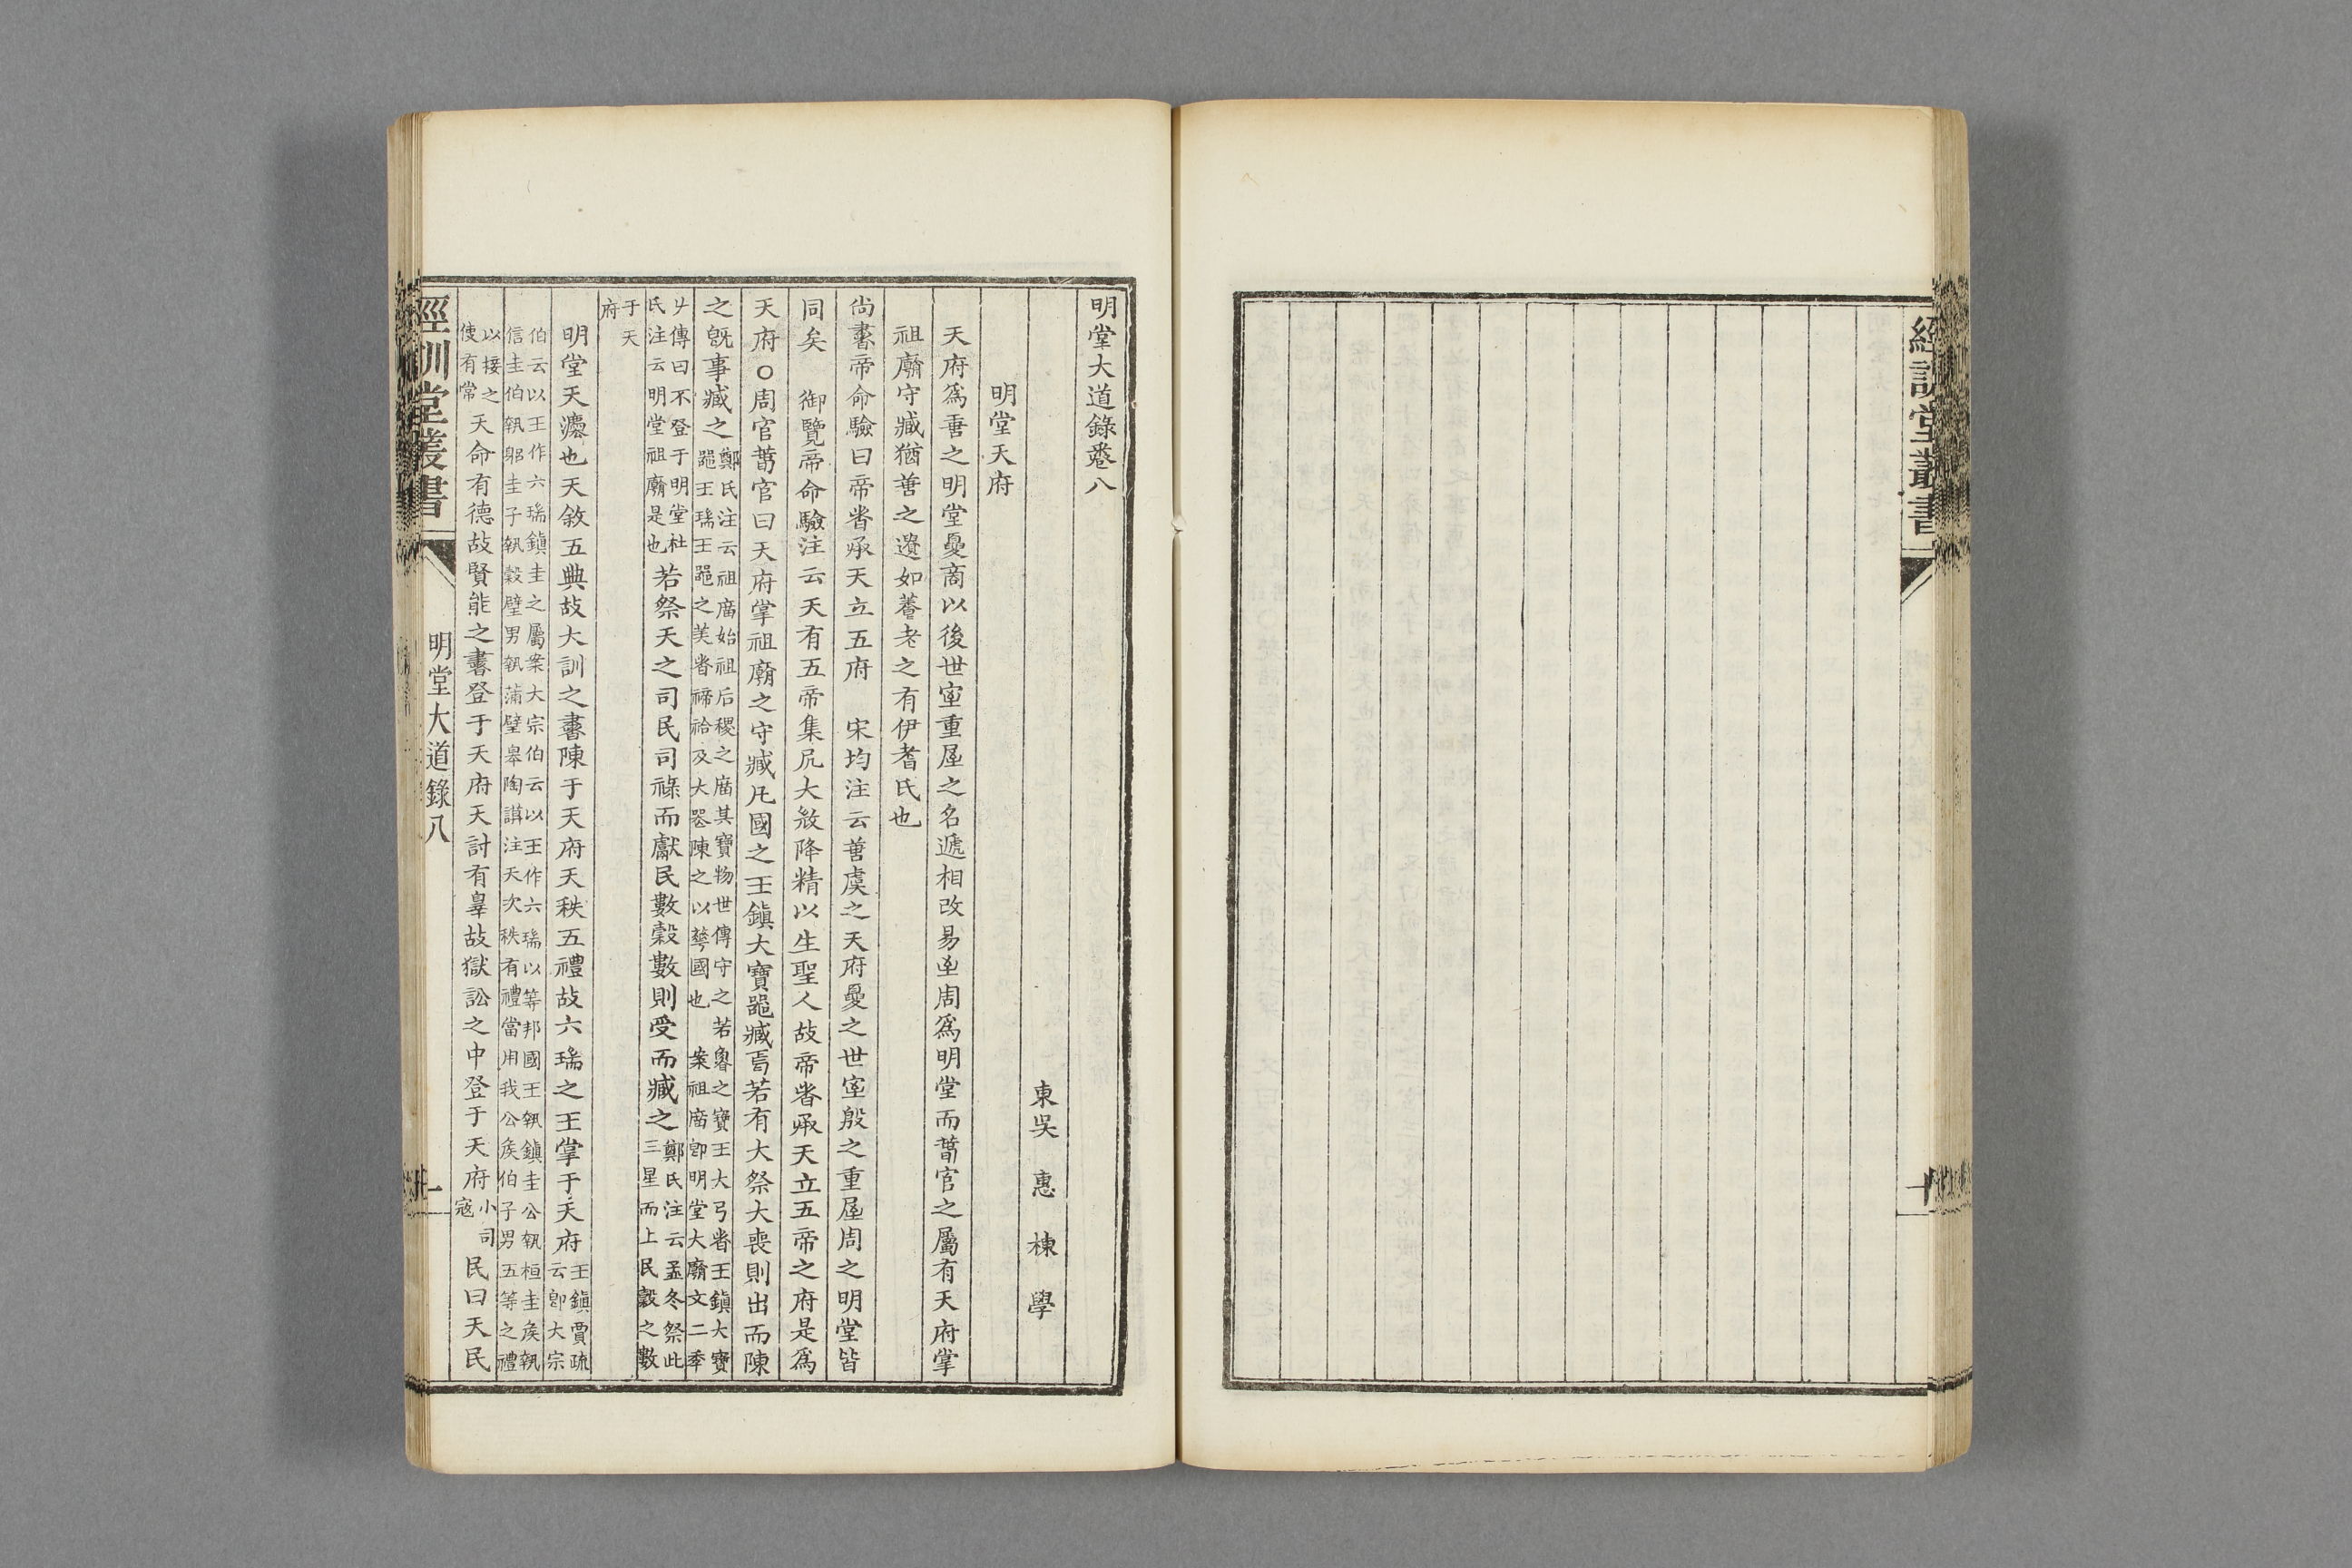 經訓堂叢書
明堂大道錄卷八
東吳 惠 棟 學
明堂天府
天府爲唐之明堂夏商以後世室重屋之名遞相改易迄周爲明堂而春官之屬有天府掌
祖廟守臧猶唐之遺如養老之有伊耆氏也
尙書帝命驗曰帝者承天立五府 宋均注云唐虞之天府夏之世室殷之重屋周之明堂皆
同矣 御覽帝命驗注云天有五帝集凥大㣲降精以生聖人故帝者承天立五帝之府是爲
天府○周官春官曰天府掌祖廟之守臧凡國之玉鎭大寶器臧焉若有大祭大喪則出而陳
之旣事臧之鄭氏注云祖廟始祖后稷之廟其寶物世傳守之若魯之寶玉大弓者玉鎭大寶
器玉瑞玉器之美者禘祫及大器陳之以華國也 案祖廟卽明堂大廟文二秊
ナ傳曰不登于明堂杜
氏注云明堂祖廟是也若祭天之司民司祿而獻民數穀數則受而臧之鄭氏注云孟冬祭此
三星而上民穀之數
于天
府
明堂天灋也天敘五典故大訓之書陳于天府天秩五禮故六瑞之玉掌于天府玉鎭賈疏
云卽大宗
伯云以玉作六瑞鎭圭之屬案大宗伯云以玉作六瑞以等邦國王執鎭圭公執桓圭矦執
信圭伯執躬圭子執穀璧男執蒲璧皋陶謨注天次秩有禮當用我公矦伯子男五等之禮
以接之
使有常天命有德故賢能之書登于天府天討有辠故獄訟之中登于天府小司
寇民曰天民
經訓堂叢書
明堂大道錄八
一